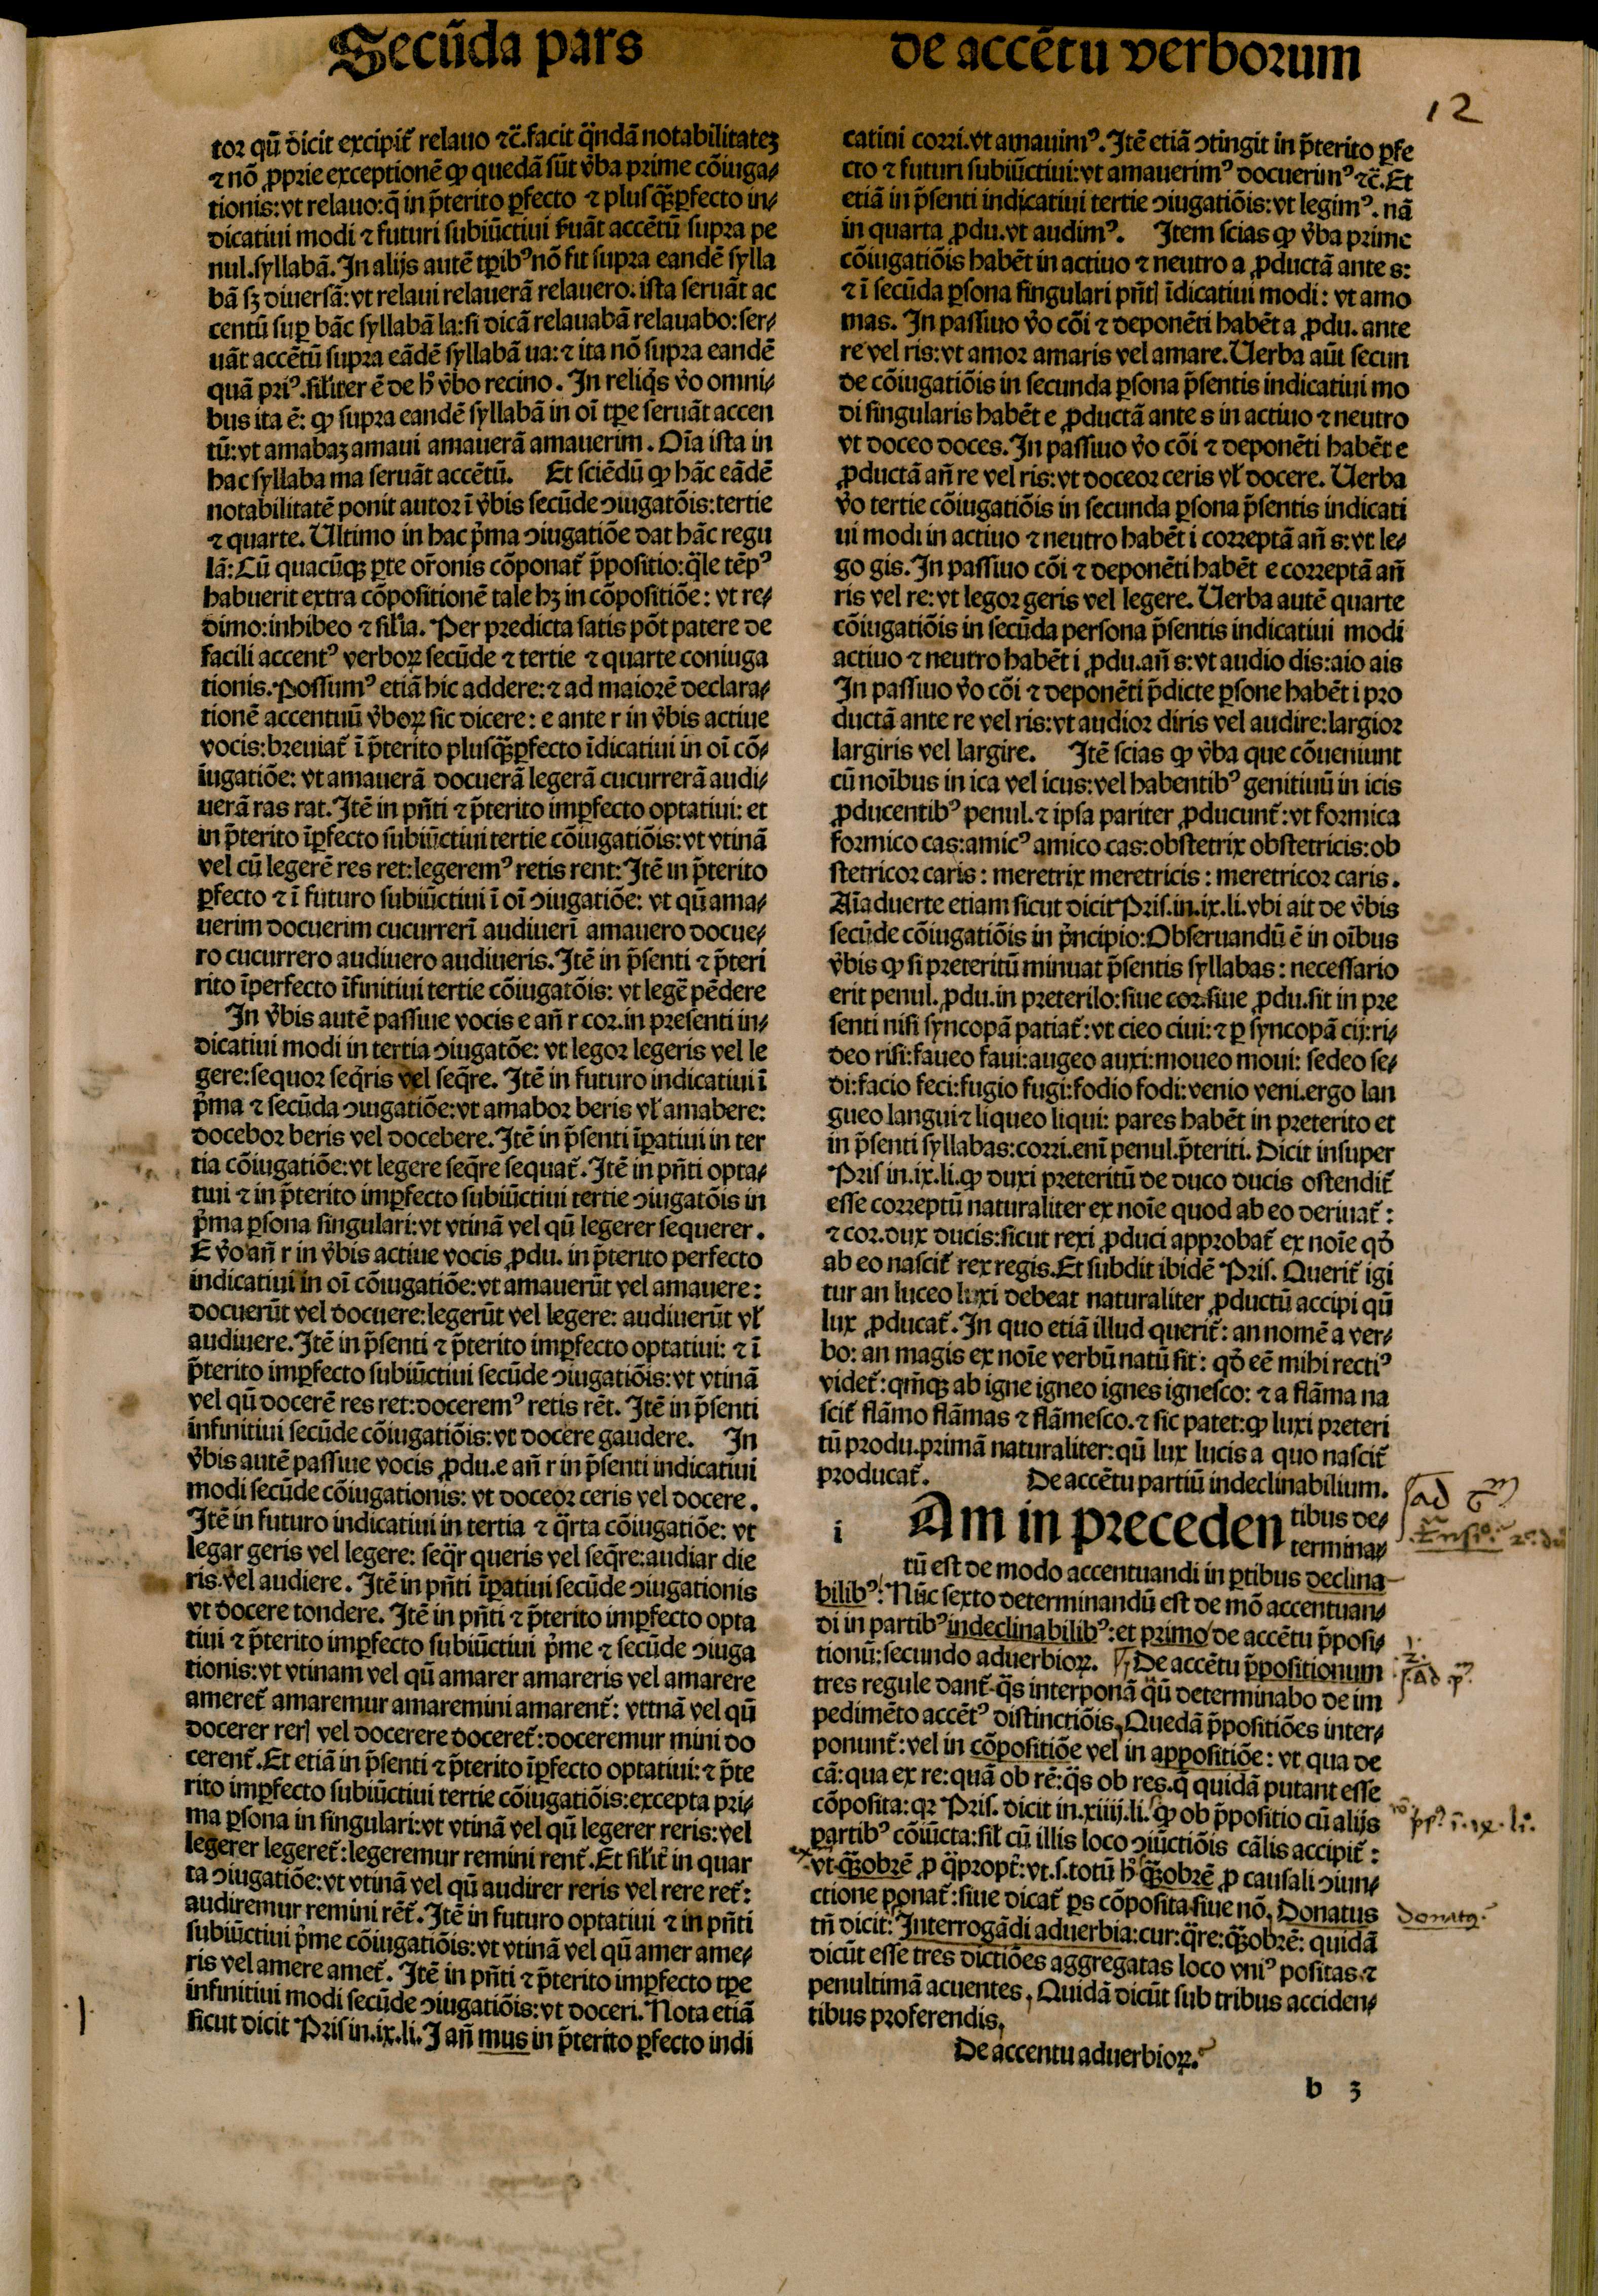 Secũda pars
de accẽtu verborum
12
tor qũ dicit excipit̃ relauo ⁊c̃.facit q̃ndã notabilitateʒ
⁊ nõ ꝓprie exceptionẽ ꝙ quedã sũt v̓ba prime cõiuga⸗
tionis:vt relauo:q̃ in p̃terito ꝑfecto ⁊ plusq̃ꝫꝑfecto in⸗
dicatiui modi ⁊ futuri subiũctiui s̓uãt accẽtũ supra pe
nul.syllabã.In alijs autẽ tꝑibꝰ nõ fit supra eandẽ sylla
bã sꝫ diuersã:vt relaui relauerã relauero.ista seruãt ac
centũ suꝑ bãc syllabã la:si dicã relauabã relauabo:ser⸗
uãt accẽtũ supra eãdẽ syllabã ua:⁊ ita nõ supra eandẽ
quã priꝰ.siliter ẽ de h̓ v̓bo recino. In reliq̓s v̓o omni⸗
bus ita ẽ: ꝙ supra eandẽ syllabã in oĩ tꝑe seruãt accen
tũ:vt amabaʒ amaui amauerã amauerim. Oĩa ista in
hac syllaba ma seruãt accẽtũ. Et sciẽdũ ꝙ hãc eãdẽ
notabilitatẽ ponit autor ĩ v̓bis secũde ↄiugatõis:tertie
⁊ quarte. Ultimo in hac p̓ma ↄiugatiõe dat hãc regu
lã:Cũ quacũqꝫ ꝑte or̃onis cõponat̃ p̃positio:q̃le tẽpꝰ
habuerit extra cõpositionẽ tale hꝫ in cõpositiõe: vt re⸗
dimo:inhibeo ⁊ sil'ia. Per predicta satis põt patere de
facili accentꝰ verboꝝ secũde ⁊ tertie ⁊ quarte coniuga
tionis.Possumꝰ etiã hic addere:⁊ ad maiorẽ declara⸗
tionẽ accentuũ v̓boꝝ sic dicere: e ante r in v̓bis actiue
vocis:breuiat̃ ĩ p̃terito plusq̃ꝫꝑfecto ĩdicatiui in oĩ cõ⸗
iugatiõe: vt amauerã docuerã legerã cucurrerã audi⸗
uerã ras rat. Itẽ in pñti ⁊ p̃terito imꝑfecto optatiui: et
in p̃terito ĩꝑfecto subiũctiui tertie cõiugatiõis:vt vtinã
vel cũ legerẽ res ret:legeremꝰ retis rent:Itẽ in p̃terito
ꝑfecto ⁊ ĩ futuro subiũctiui ĩ oĩ ↄiugatiõe: vt qũ ama⸗
uerim docuerim cucurrerĩ audiuerĩ amauero docue⸗
ro cucurrero audiuero audiueris.Itẽ in p̃senti ⁊ p̃teri
rito ĩperfecto ĩfinitiui tertie cõiugatõis: vt legẽ pẽdere
In v̓bis autẽ passiue vocis e añ r cor.in presenti in⸗
dicatiui modi in tertia ↄiugatõe: vt legor legeris vel le
gere:sequor seq̃ris vel seq̃re. Itẽ in futuro indicatiui ĩ
p̓ma ⁊ secũda ↄiugatiõe:vt amabor beris vl' amabere:
docebor beris vel docebere.Itẽ in p̃senti ĩꝑatiui in ter
tia cõiugatiõe:vt legere seq̃re sequat̃. Itẽ in pñti opta⸗
tiui ⁊ in p̃terito imꝑfecto subiũctiui tertie ↄiugatõis in
p̓ma ꝑsona singulari:vt vtinã vel qũ legerer sequerer.
E v̓o añ r in v̓bis actiue vocis ꝓdu. in p̃terito perfecto
indicatiui in oĩ cõiugatiõe:vt amauerũt vel amauere:
docuerũt vel docuere:legerũt vel legere: audiuerũt vl'
audiuere.Itẽ in p̃senti ⁊ p̃terito imꝑfecto optatiui: ⁊ ĩ
p̃terito imꝑfecto subiũctiui secũde ↄiugatiõis:vt vtinã
vel qũ docerẽ res ret:doceremꝰ retis rẽt. Itẽ in p̃senti
infinitiui secũde cõiugatiõis:vt docere gaudere. In
v̓bis autẽ passiue vocis ꝓdu.e añ r in p̃senti indicatiui
modi secũde cõiugationis: vt doceor ceris vel docere.
Itẽ in futuro indicatiui in tertia ⁊ q̃rta cõiugatiõe: vt
legar geris vel legere: seq̃r queris vel seq̃re:audiar die
ris vel audiere. Itẽ in pñti ĩꝑatiui secũde ↄiugationis
vt docere tondere. Itẽ in pñti ⁊ p̃terito imꝑfecto opta
tiui ⁊ p̃terito imꝑfecto subiũctiui p̓me ⁊ secũde ↄiuga
tionis:vt vtinam vel qũ amarer amareris vel amarere
ameret̃ amaremur amaremini amarent̃: vttnã vel qũ
docerer rerꝭ vel docerere doceret̃:doceremur mini do
cerent̃.Et etiã in p̃senti ⁊ p̃terito ĩꝑfecto optatiui:⁊ p̃te
rito imꝑfecto subiũctiui tertie cõiugatiõis:excepta pri⸗
ma ꝑsona in singulari:vt vtinã vel qũ legerer reris:vel
legerer legeret̃:legeremur remini rent̃.Et sil'it̃ in quar
ta ↄiugatiõe:vt vtinã vel qũ audirer reris vel rere ret̃:
audiremur remini rẽt̃. Itẽ in futuro optatiui ⁊ in pñti
subiũctiui p̓me cõiugatiõis:vt vtinã vel qũ amer ame⸗
ris vel amere amet̃. Itẽ in pñti ⁊ p̃terito imꝑfecto tꝑe
infinitiui modi secũde ↄiugatiõis:vt doceri. Nota etiã
sicut dicit Pris in.ix.li.I añ mus in p̃terito ꝑfecto indi
catiui corri.vt amauimꝰ.Itẽ etiã ↄtingit in p̃terito ꝑfe
cto ⁊ futuri subiũctiui:vt amauerimꝰ docuerimꝰ ⁊c̃.Et
etiã in p̃senti indicatiui tertie ↄiugatiõis:vt legimꝰ.nã
in quarta ꝓdu.vt audimꝰ. Item scias ꝙ v̓ba prime
cõiugatiõis habẽt in actiuo ⁊ neutro a ꝓductã ante s:
⁊ ĩ secũda ꝑsona singulari pñtꝭ ĩdicatiui modi: vt amo
mas. In passiuo v̓o cõi ⁊ deponẽti habẽt a ꝓdu. ante
re vel ris:vt amor amaris vel amare.Uerba aũt secun
de cõiugatiõis in secunda ꝑsona p̃sentis indicatiui mo
di singularis habẽt e ꝓductã ante s in actiuo ⁊ neutro
vt doceo doces.In passiuo v̓o cõi ⁊ deponẽti habẽt e
ꝓductã añ re vel ris:vt doceor ceris vl' docere. Uerba
v̓o tertie cõiugatiõis in secunda ꝑsona p̃sentis indicati
ui modi in actiuo ⁊ neutro habẽt i correptã añ s:vt le⸗
go gis.In passiuo cõi ⁊ deponẽti habẽt e correptã añ
ris vel re:vt legor geris vel legere. Uerba autẽ quarte
cõiugatiõis in secũda persona p̃sentis indicatiui modi
actiuo ⁊ neutro habẽt i ꝓdu.añ s:vt audio dis:aio ais
In passiuo v̓o cõi ⁊ deponẽti p̃dicte ꝑsone habẽt i pro
ductã ante re vel ris:vt audior diris vel audire:largior
largiris vel largire. Itẽ scias ꝙ v̓ba que cõueniunt
cũ noĩbus in ica vel icus:vel habentibꝰ genitiuũ in icis
ꝓducentibꝰ penul.⁊ ipsa pariter ꝓducunt̃:vt formica
formico cas:amicꝰ amico cas:obstetrix obstetricis:ob
stetricor caris: meretrix meretricis: meretricor caris.
Aĩaduerte etiam sicut dicit Pris.in.ix.li.vbi ait de v̓bis
secũde cõiugatiõis in p̓ncipio:Obseruandũ ẽ in oĩbus
v̓bis ꝙ si preteritũ minuat p̃sentis syllabas: necessario
erit penul.ꝓdu.in preterilo:siue cor.siue ꝓdu.sit in pre
senti nisi syncopã patiat̃:vt cieo ciui:⁊ ꝑ syncopã cij:ri⸗
deo risi:faueo faui:augeo auxi:moueo moui: sedeo se⸗
di:facio feci:fugio fugi:fodio fodi:venio veni.ergo lan
gueo langui ⁊ liqueo liqui: pares habẽt in preterito et
in p̃senti syllabas:corri.enĩ penul.p̃teriti. Dicit insuper
Pris in.ix.li.ꝙ duxi preteritũ de duco ducis ostendit̃
esse correptũ naturaliter ex noĩe quod ab eo deriuat̃:
⁊ cor.dux ducis:sicut rexi ꝓduci approbat̃ ex noĩe qd̓
ab eo nascit̃ rex regis.Et subdit ibidẽ Pris. Querit̃ igi
tur an luceo luxi debeat naturaliter ꝓductũ accipi qũ
lux ꝓducat̃.In quo etiã illud querit̃: an nomẽ a ver⸗
bo: an magis ex noĩe verbũ natũ sit: qd̓ eẽ mihi rectiꝰ
videt̃:qm̃qꝫ ab igne igneo ignes ignesco: ⁊ a flãma na
scit̃ flãmo flãmas ⁊ flãmesco.⁊ sic patet:ꝙ luxi preteri
tũ produ.primã naturaliter:qũ lux lucis a quo nascit̃
producat̃. De accẽtu partiũ indeclinabilium.
i Am in preceden tibus de⸗
termina⸗
tũ est de modo accentuandi in ꝑtibus declina
bilibꝰ: Nũc sexto determinandũ est de mõ accentuan⸗
di in partibꝰ indeclinabilibꝰ:et primo de accẽtu p̃posi⸗
tionũ:secundo aduerbioꝝ. De accẽtu p̃positionum
tres regule dant̃.q̃s interponã qũ determinabo de im
pedimẽto accẽtꝰ distinctiõis, Quedã p̃positiões inter⸗
ponunt̃:vel in cõpositiõe vel in appositiõe: vt qua de
cã:qua ex re:quã ob rẽ:q̃s ob res.q̃ quidã putant esse
cõposita:qꝛ Pris. dicit in.xiiij.li. ꝙ ob p̃positio cũ alijs
ꝑartibꝰ cõiũcta:sil' cũ illis loco ↄiũctiõis cãlis accipit̃:
vt q̃ꝫobrẽ ꝓ q̃propt̃:vt.s.totũ h̓ q̃ꝫobrẽ ꝓ causali ↄiun⸗
ctione ponat̃:siue dicat̃ ꝑs cõposita siue nõ, Donatus
tñ dicit: Interrogãdi aduerbia:cur:q̃re:q̃ꝫobrẽ: quidã
dicũt esse tres dictiões aggregatas loco vniꝰ positas ⁊
penultimã acuentes, Quidã dicũt sub tribus acciden⸗
tibus proferendis,
De accentu aduerbioꝝ.
b 3
ad 6m
1.
2.
ad p̃
pſ? ĩ.ix.li.
Donatꝰ.